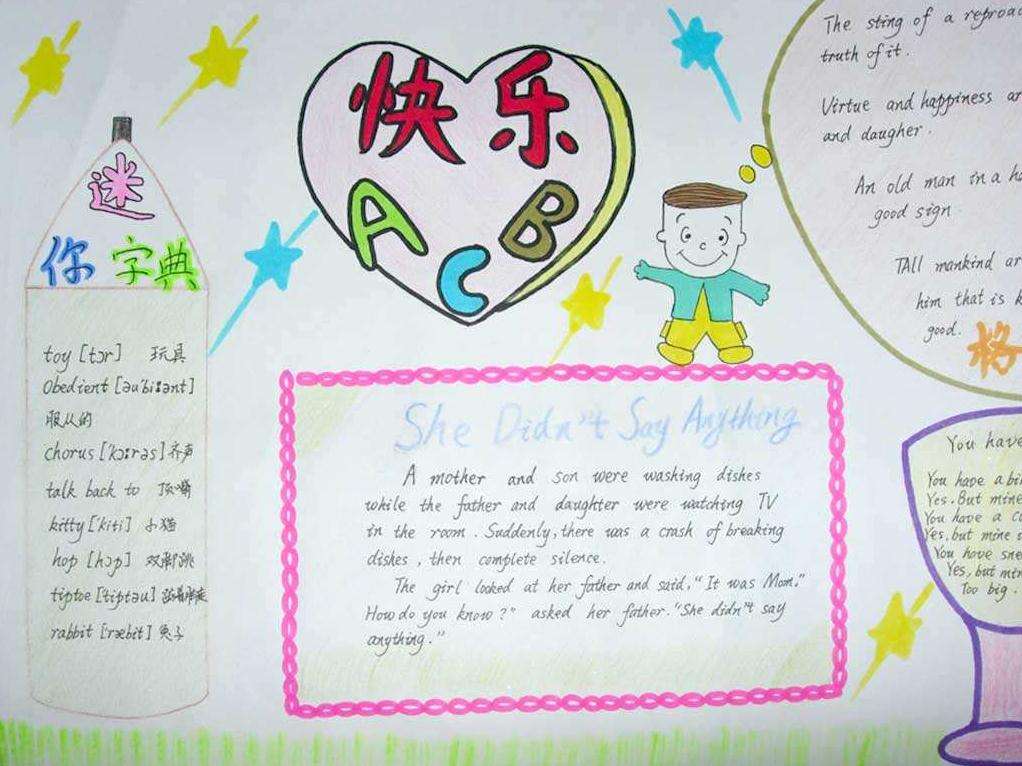 快乐
ABC
迷
你字典
toy [tɔr] 玩具
Obedient [əu'bi:ənt]
服从的
chorus ['kɔ:rəs] 齐声
talk back to 顶嘴
kitty ['kiti] 小猫
hop [hɔp] 双脚跳
tiptoe ['tiptəu]
rabbit [ræbit] 兔子
She Didn't Say Anything
A mother and son were washing dishes
while the father and daughter were watching TV
in the room. Suddenly, there was a crash of breaking
dishes, then complete silence.
The girl looked at her father and said, "It was Mom."
How do you know?" asked her father. "She didn't say
anything."
The sting of a
truth of it.
Virtue and happiness
and daugher.
An old man in a
good sign
TAll mankind
him that is
good.
格
You have
You have a
Yes. But mine
You have a
Yes, but mine
You have
Yes, but
Too big.